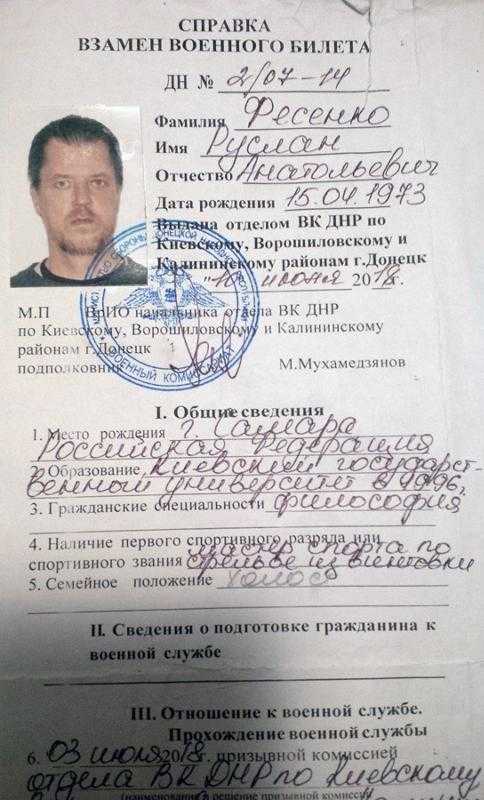 СПРАВКА
ВЗАМЕН ВОЕННОГО БИЛЕТА
ДН № 2/07-14
Фамилия Фесенко
Имя Руслан
Отчество Анатольевич
Дата рождения 15.04.1973
Выдана отделом ВК ДНР по
Киевскому, Ворошиловскому и
Калининскому районам г.Донецк
июня 2018г.
М.П ВрИО начальника отдела ВК ДНР
по Киевскому, Ворошиловскому и Калининскому
районам г.Донецк
подполковник М.Мухамедзянов
ВОЕННЫЙ КОМИССАРИАТ
I. Общие сведения
1. Место рождения г. Самара
Российская Федерация
2. Образование Киевский государст-
венный университет в 1996г.
3. Гражданские специальности философия
4. Наличие первого спортивного разряда или
мастер спорта по
спортивного звания стрельбе из винтовки
5. Семейное положение холост
II. Сведения о подготовке гражданина к
военной службе
III. Отношение к военной службе.
Прохождение военной службы
6. 03 июля 2018г. призывной комиссией
отдела ВК ДНР по Киевскому